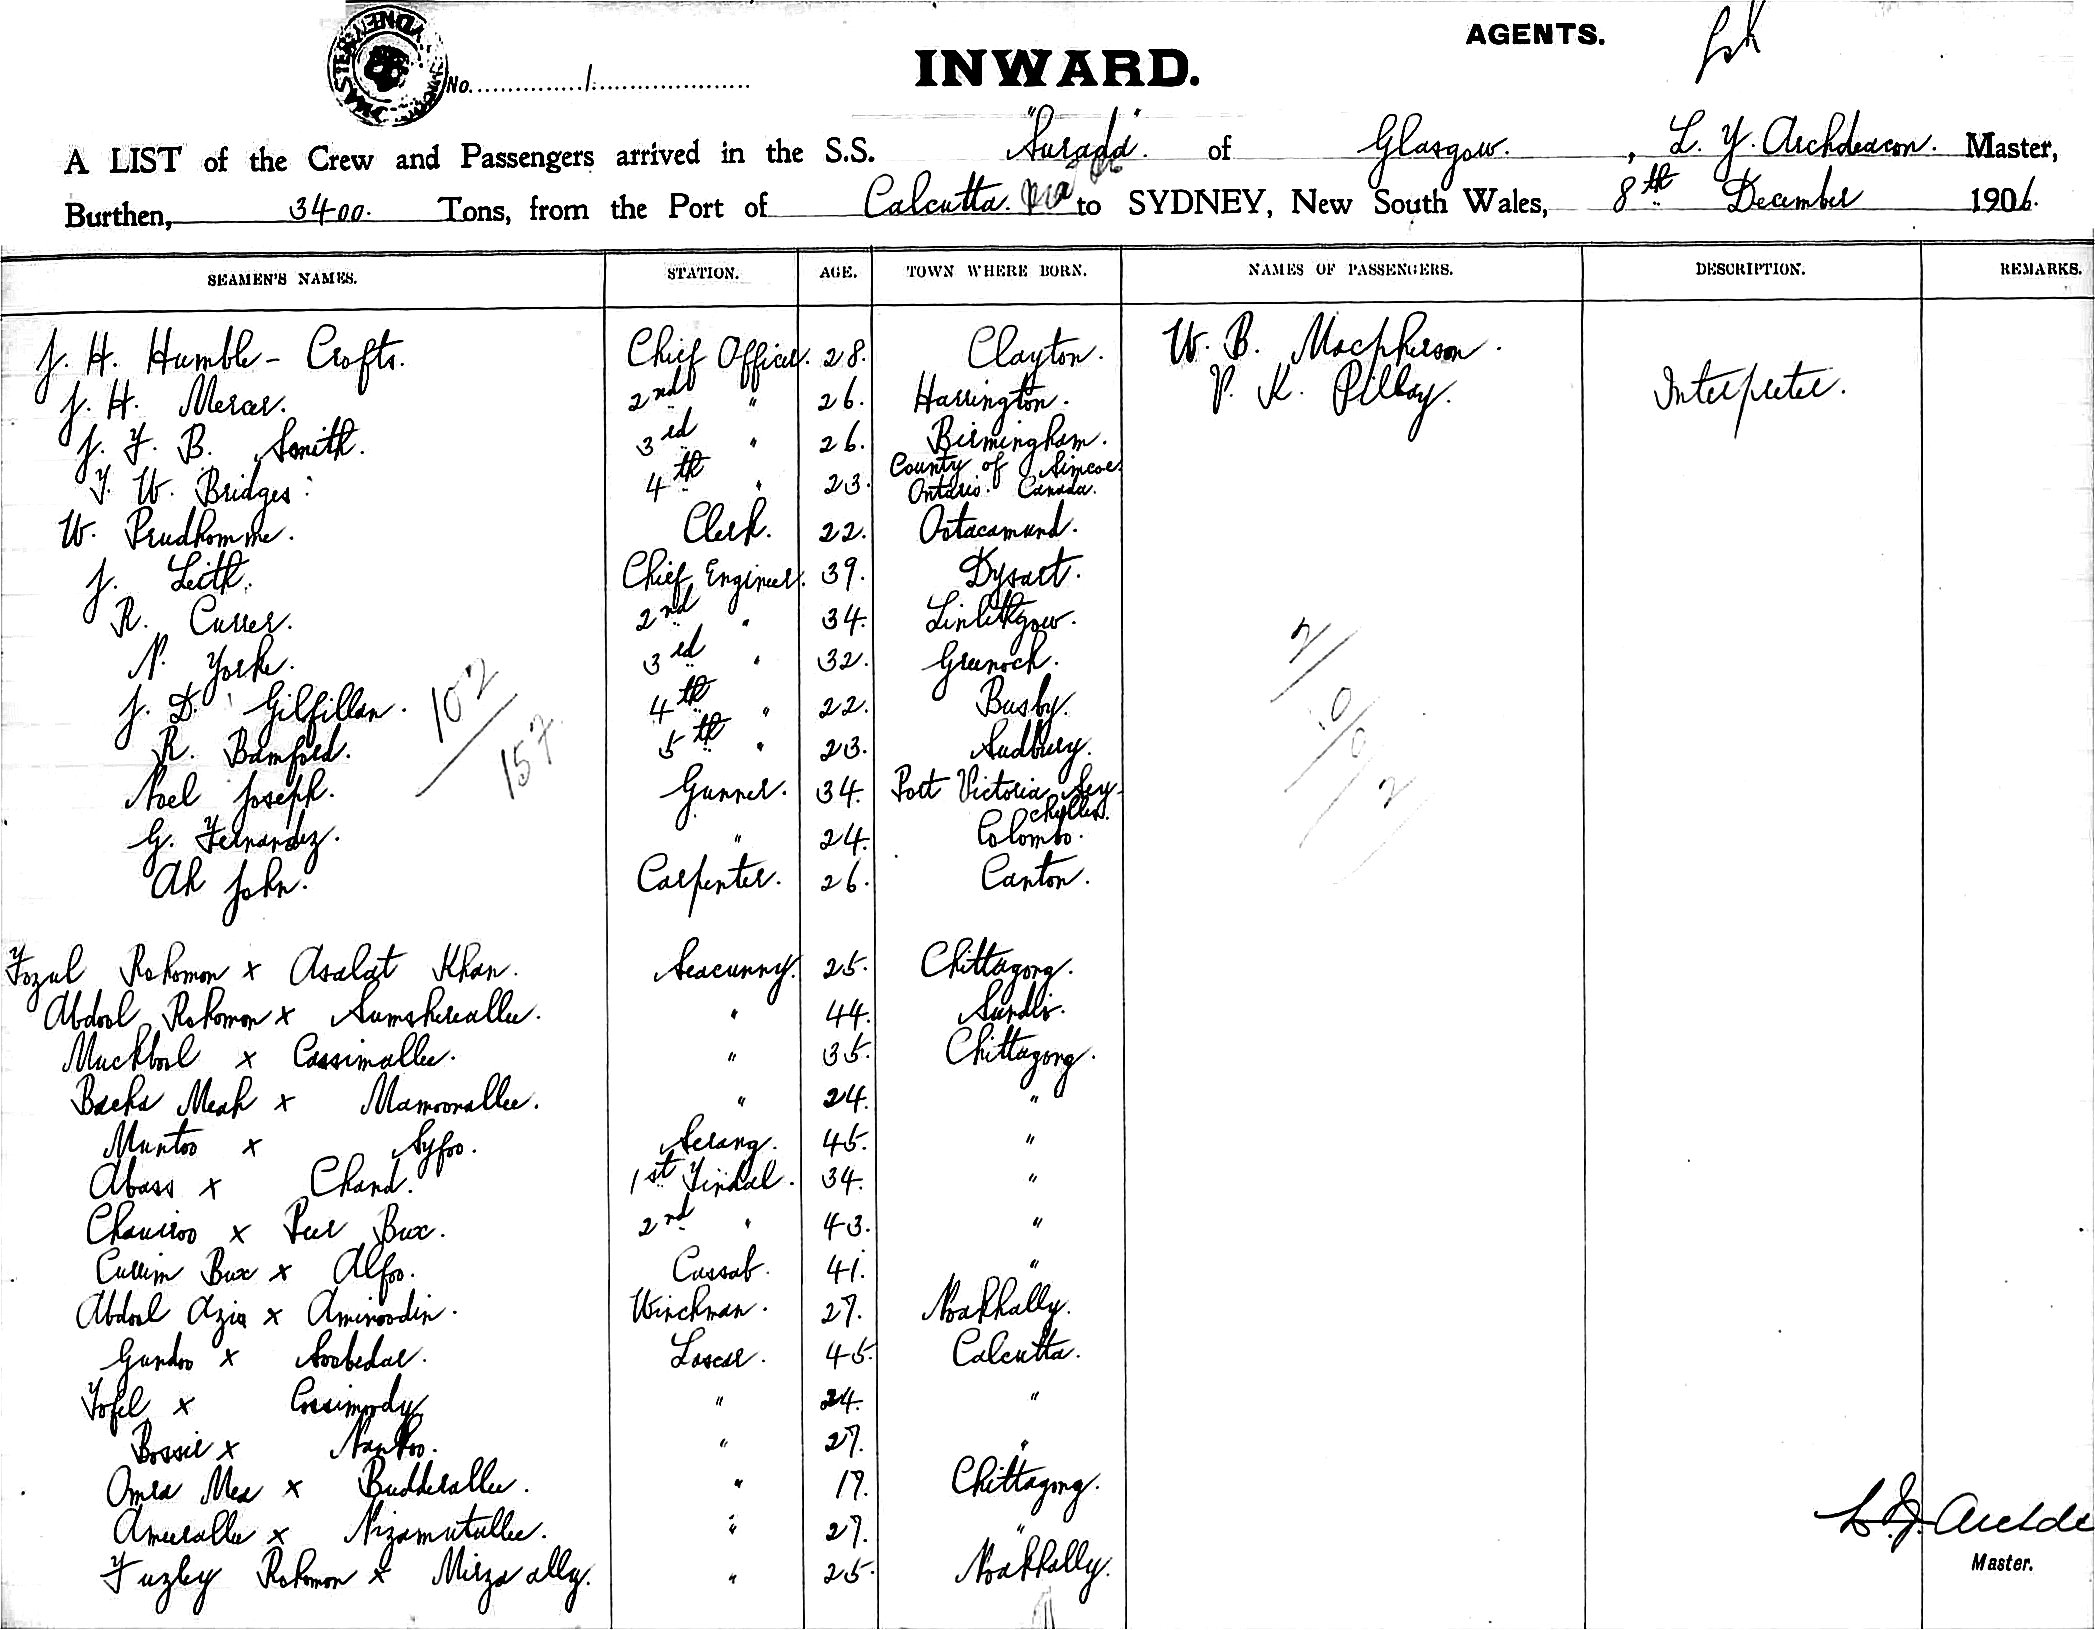 AGENTS.
INWARD.
No. 1.
A LIST of the Crew and Passengers arrived in the S.S. "Surada" of Glasgow. , L. Y. Archdeacon. Master,
Burthen, 3400. Tons, from the Port of Calcutta. via to SYDNEY, New South Wales, 8th December 1906.
SEAMEN'S NAMES. STATION. AGE. TOWN WHERE BORN. NAMES OF PASSENGERS. DESCRIPTION. REMARKS.
J. H. Humble-Crofts. Chief Officer. 28. Clayton. W. B. Macpherson.
J. H. Mercer. 2nd " 26. Harrington. V. K. Pillay. Interpreter.
J. F. B. Smith. 3rd " 26. Birmingham.
F. W. Bridges. 4th " 23. County of Simcoe. Ontario. Canada.
W. Prudhomme. Clerk. 22. Ootacamund.
J. Leith. Chief Engineer. 39. Dysart.
R. Currer. 2nd " 34. Linlithgow.
N. Yorke. 3rd " 32. Greenock.
J. D. Gilfillan. 4th " 22. Busby.
R. Bamford. 5th " 23. Sudbury.
102
157
2/
0/0/2
Noel Joseph. Gunner. 34. Port Victoria Seychelles.
G. Fernandez. " 24. Colombo.
Ah John. Carpenter. 26. Canton.
Fozul Rohomon x Asalat Khan. Seacunny. 25. Chittagong.
Abdool Rohomon x Sumshereallee. " 44. Surdli.
Muckbool x Cassimallee. " 35. Chittagong.
Bacha Meah x Mamoonallee. " 24. "
Muntoo x Syfoo. Serang. 45. "
Abass x Chand. 1st Tindal. 34. "
Chauroo x Peer Bux. 2nd " 43. "
Cullim Bux x Alfoo. Cassab. 41. "
Abdool Azia x Aminoodin. Winchman. 27. Noakhally.
Gundoo x Soobedar. Lascar. 45. Calcutta.
Tofel x Cossimody " 24. "
Bossir x Nankoo. " 27. "
Omra Mea x Budderallee. " 19. Chittagong.
Ameerallee x Nizamutullee. " 27. "
Fuzley Rohomon x Mirza ally. " 25. Noakhally.
L. Y. Archde
Master.